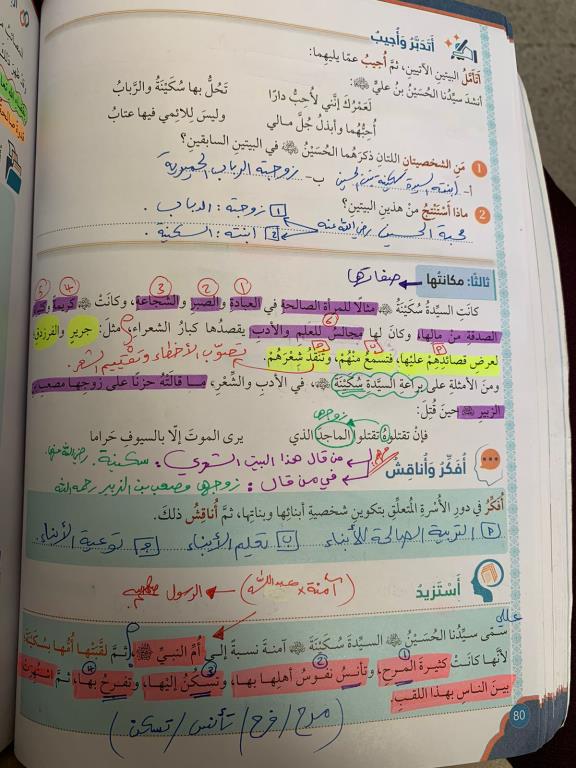 أَتَدَبَّرُ وَأُجيبُ
أَتَأَمَّلُ البيتينِ الآتيينِ، ثمَّ أُجيبُ عمّا يليهِما:
أنشدَ سيِّدُنا الحُسَيْنُ بنُ عليٍّ:
لَعَمْرُكَ إنَّني لَأُحِبُّ دارًا تَحُلُّ بها سُكَيْنَةُ والرَّبابُ
أُحِبُّهُما وأبذلُ جُلَّ مالي وليسَ لِلائِمي فيها عتابُ
1 مَنِ الشخصيتانِ اللتانِ ذكرَهُما الحُسَيْنُ في البيتينِ السابقينِ؟
أ- ابنته السيدة سكينة بنت الحسين ب- زوجته الرباب
2 ماذا أَسْتَنْتِجُ منْ هذينِ البيتينِ؟
1 زوجته: الرباب.
محبة الحسين رضي الله عنه
2 ابنته: السكينة.
ثالثًا: مكانتُها صفاتها
كانَتِ السيِّدةُ سُكَيْنَةُ مثالًا للمرأةِ الصالحةِ في العبادةِ والصبرِ والشجاعةِ، وكانَتْ كريمةً
الصدقةِ مِنْ مالِها، وكانَ لها مجالسُ للعلمِ والأدبِ يقصدُها كبارُ الشعراءِ، مثلَ: جريرٍ والفرزدقِ
لعرضِ قصائدِهِمْ عليْها، فتسمعُ منهُمْ، وتنقدُ شِعْرَهُمْ.
تصوّب الأخطاء وتقييم الشعر
ومنَ الأمثلةِ على براعةِ السيّدةِ سُكَيْنَةَ، في الأدبِ والشِّعْرِ، ما قالَتْهُ حزنًا على زوجِها مصعبِ بنِ
الزبيرِ حينَ قُتِلَ:
زوجها
فإنْ تقتلوهُ تقتلوا الماجدَ الذي يرى الموتَ إلّا بالسيوفِ حَراما
أُفَكِّرُ وَأُناقِشُ
من قال هذا البيت الشعري: سكينة رضي الله عنها.
في من قال: زوجها مصعب بن الزبير رحمه الله
أُفكِّرُ في دورِ الأُسْرةِ المُتعلِّقِ بتكوينِ شخصيةِ أبنائِها وبناتِها، ثمَّ أُناقِشُ ذلكَ.
أ التربية الصالحة للأبناء ب تعليم الأبناء ج توعية الأبناء.
أَسْتَزيدُ
(آمنة × عبدالله) الرسول ﷺ
سَمّى سيِّدُنا الحُسَيْنُ السيِّدةَ سُكَيْنَةَ آمنةَ نسبةً إلى أُمِّ النبيِّ ﷺ، ثمَّ لقَّبَتْها أُمُّها بسُكَيْنَةَ
لأنَّها كانَتْ كثيرةَ المرحِ، وتأنسُ نفوسُ أهلِها بها، وتسكُنُ إليْها، وتفرحُ بها، ثمَّ اشتهرَتْ
بينَ الناسِ بهذا اللقبِ.
(مرح / فرح / تأنس / تسكن)
80